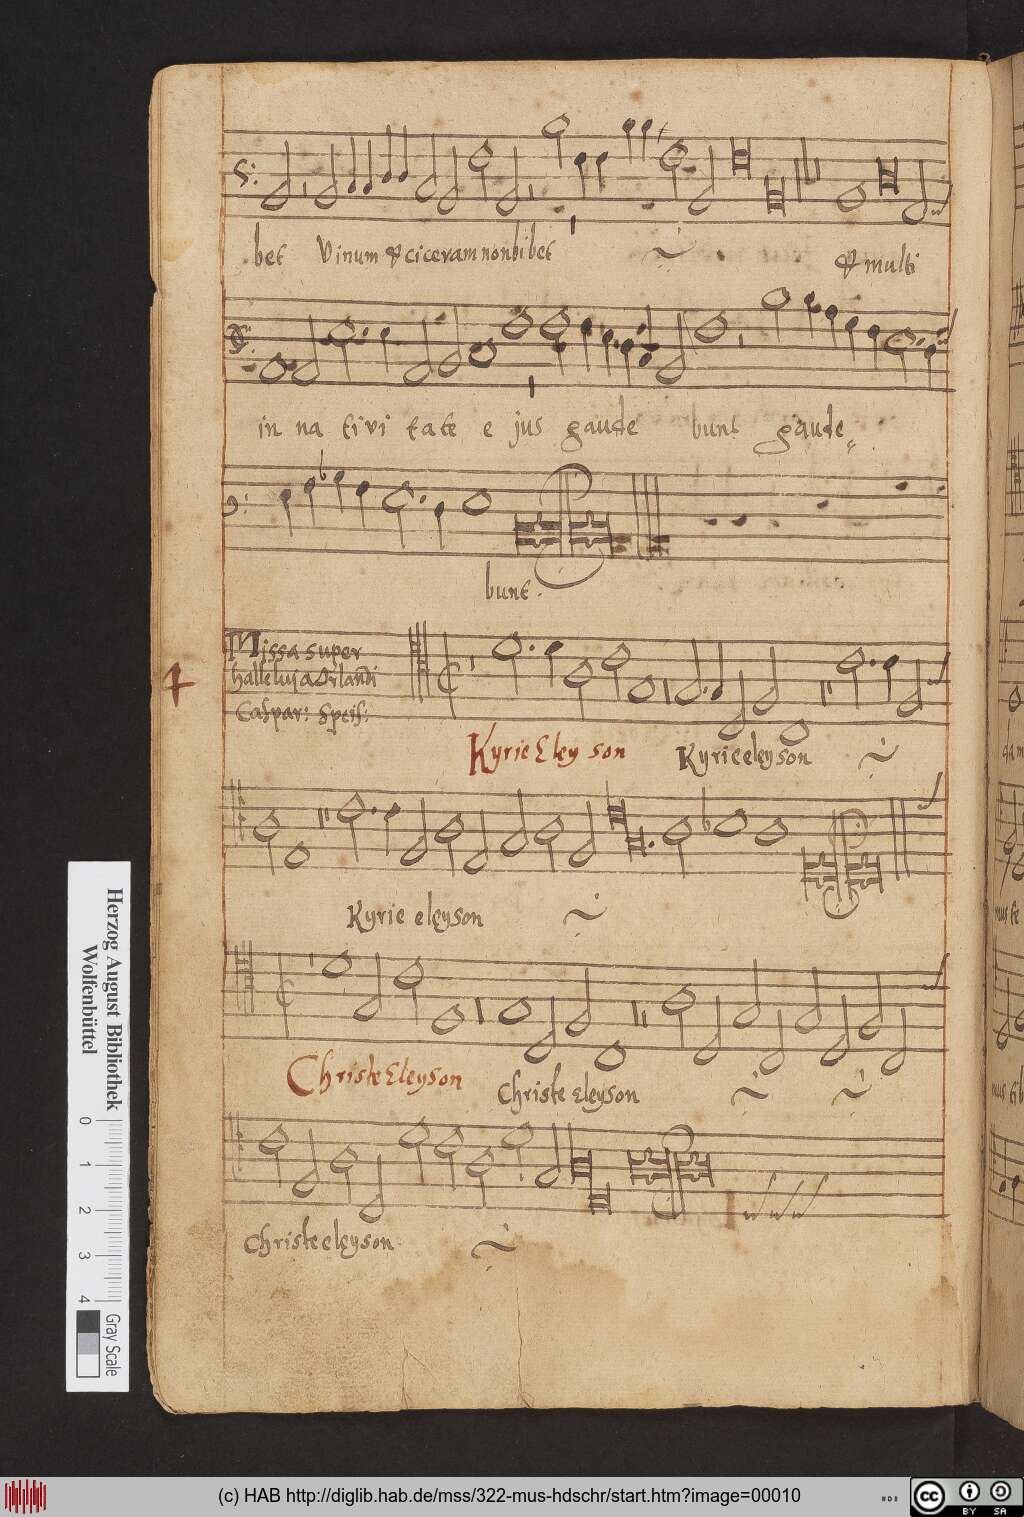 bet Vinum & ciceram non bibet & multi
in na tivi tate e jus gaude bunt gaude
bunt.
Missa super
halleluja Orlandi
Caspar: Speis:
4
Kyrie Eley son Kyrie eley son
Kyrie eleyson
Christe Eleyson Christe Eleyson
Christe eleyson
dam
Herzog August Bibliothek
Wolfenbüttel
0 1 2 3 4
Gray Scale
(c) HAB http://diglib.hab.de/mss/322-mus-hdschr/start.htm?image=00010
cc BY SA